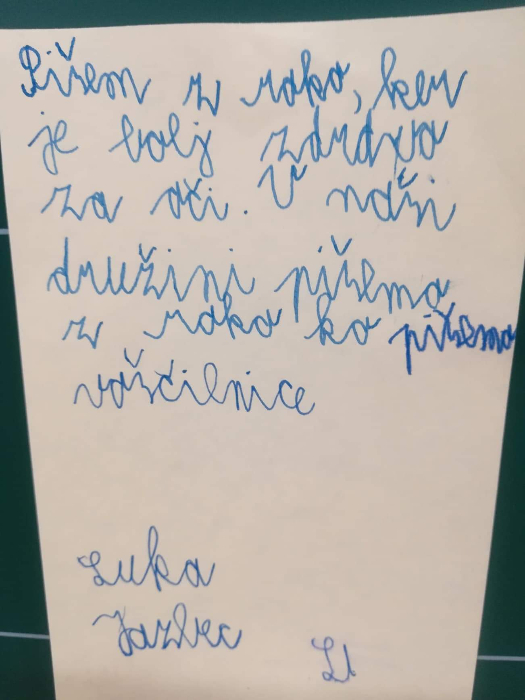 Pišem z roko, ker
je bolj zdrava
za oči. V naši
družini pišemo
z roko ko pišemo
voščilnice
Luka
Jazbec